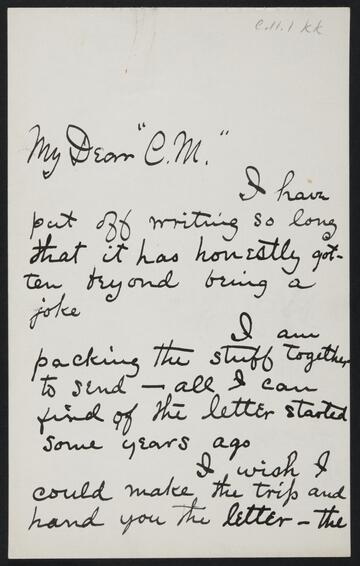 C.11.1 KK
My Dear "C.M."
I have
put off writing so long
that it has honestly got-
ten beyond being a
joke
I am
packing the stuff together
to send — all I can
find of the letter started
some years ago
I wish I
could make the trip and
hand you the letter — the